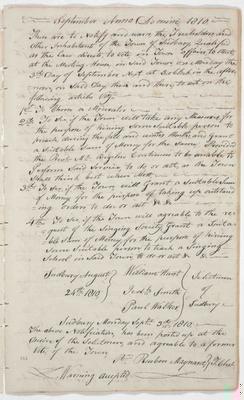 September Anno Domini 1810.
These are to Notify and warn the Freeholders and
other Inhabitants of the Town of Sudbury Qualified
as the Law directs to vote in Town affairs to Meet
at the Meeting House in said Town on Monday the
3rd Day of September Next at o'clock in the after
noon on Said Day then and there to act on the
following articles viz
1st To Choose a Moderator
2nd To See if the Town will take any Measures for
the purpose of hiring Some Suitable person to
preach during the and grant
a Suitable Sum of Money for the Same Provided
the Revd Mr Bigelow Continues to be unable to
perform Said Service to do or act as the Town
Shall think best when Met
3rd To See if the Town will grant a Suitable Sum
of Money for the purpose of taking up outstand
ing orders to do or act &c
4th To See if the Town will agreeable to the re
quest of the Singing Society grant a Suita
ble Sum of Money for the purpose of hiring
Some Suitable person to teach a Singing
School in Said Town to do or act &c
Sudbury August
24th 1810
William Hunt
Smith
Paul Walker
Selectmen
of
Sudbury
Sudbury Monday Sept 3rd 1810
The above Notification has been posted up at the
desire of the Selectmen and agreeable to a former
vote of the Town
Reuben Maynard
Warning accepted